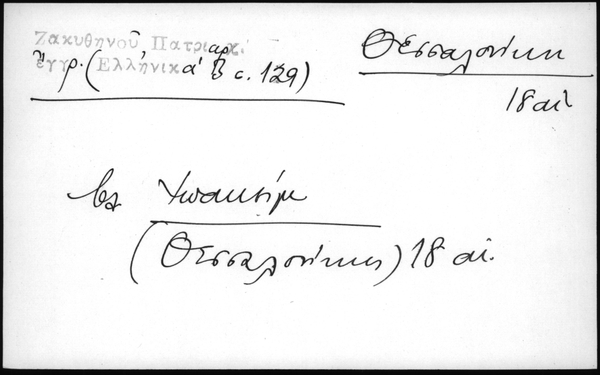 Ζακυθηνοῦ Πατριαρχ.
ἔγγρ. ( Ἑλληνικὰ Β σ. 129)
Θεσσαλονίκη
18 αἰ
βλ
(Θεσσαλονίκης) 18 αἰ.